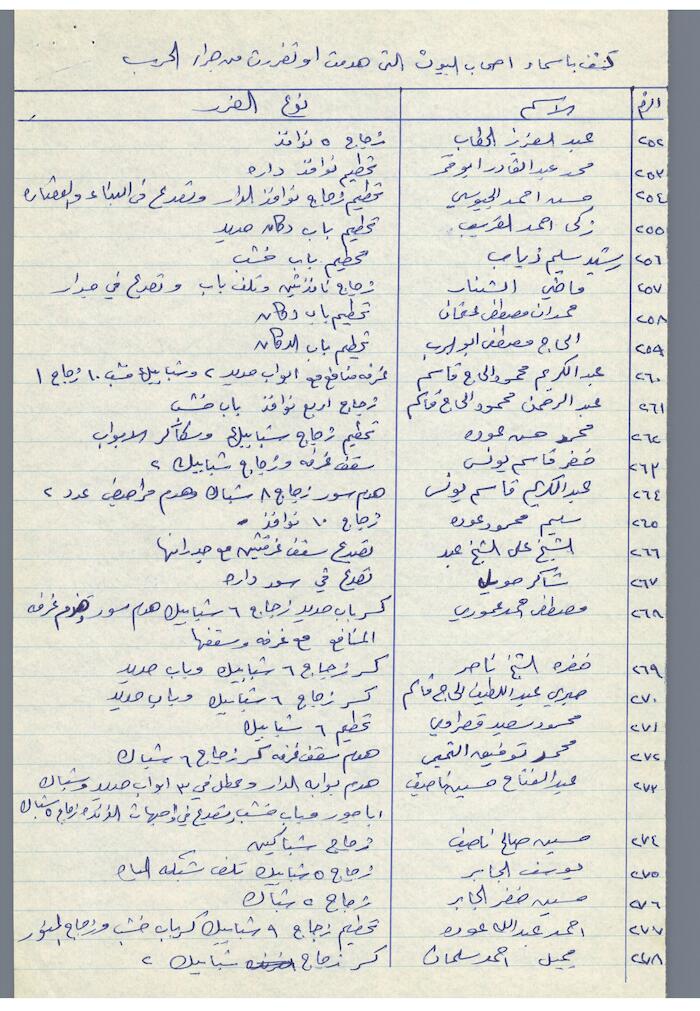 كشف باسماء اصحاب البيوت التي هدمت او تضررت من جراء الحرب
الرقم الاسم نوع الضرر
٢٥٢ عبد العزيز الحطاب زجاج ٥ نوافذ
٢٥٣ محمد عبدالقادر ابو قمر تحطيم نوافذ داره
٢٥٤ حسين احمد الجيوسي تحطيم زجاج نوافذ الدار وتصدع في البناء
٢٥٥ زكي احمد الغريب تحطيم باب دكان حديد
٢٥٦ رشيد سليم ذياب تحطيم باب خشب
٢٥٧ ماضي الشنار زجاج نافذتين وتلف باب وتصدع في جدار
٢٥٨ حمدان مصطفى عثمان تحطيم باب دكان
٢٥٩ الحاج مصطفى ابو الرب تحطيم باب الدكان
٢٦٠ عبد الكريم محمود الحاج قاسم غرفه منافع مع ابواب حديد ٢ وشبابيك خشب ١٠ زجاج ١
٢٦١ عبد الرحمن محمود الحاج قاسم زجاج اربع نوافذ باب خشب
٢٦٢ محمد حسن عوده تحطيم زجاج شبابيك وسكاكر الابواب
٢٦٣ خضر قاسم يونس سقف غرفه وزجاج شبابيك ٢
٢٦٤ عبد الكريم قاسم يونس هدم سور زجاج ٨ شباك وهدم مراحيض عدد ٢
٢٦٥ سليم محمود عوده زجاج ١٠ نوافذ
٢٦٦ الشيخ علي الشيخ عيد تصدع سقف غرفتين مع جدرانها
٢٦٧ شاكر صويلح تصدع في سور داره
٢٦٨ مصطفى احمد عموري كسر باب حديد زجاج ٦ شبابيك هدم سور وهدم غرفه
المنافع مع غرفه وسقفها
٢٦٩ خضره الشيخ ناصر كسر زجاج ٦ شبابيك وباب حديد
٢٧٠ صبري عبد اللطيف الحاج قاسم كسر زجاج ٦ شبابيك وباب حديد
٢٧١ محمود سعيد قصراوي تحطيم ٦ شبابيك
٢٧٢ محمد توفيق التميمي هدم سقف غرفه كسر زجاج ٦ شباك
٢٧٣ عبد الفتاح حسين ناصيف هدم بوابه الدار وعطل في ٣ ابواب حديد وشباك
اباجور وباب خشب وتصدع في واجهات زجاج ٥ شباك
٢٧٤ حسين صالح ناصيف زجاج شباكين
٢٧٥ يوسف الجابر زجاج ٥ شبابيك تلف شبكه الماء
٢٧٦ حسين خضر الجابر زجاج ٥ شباك
٢٧٧ احمد عبد الله عوده تحطيم زجاج ٩ شبابيك كسر باب خشب وزجاج المنور
٢٧٨ جميل احمد سلمان كسر زجاج شبابيك ٢